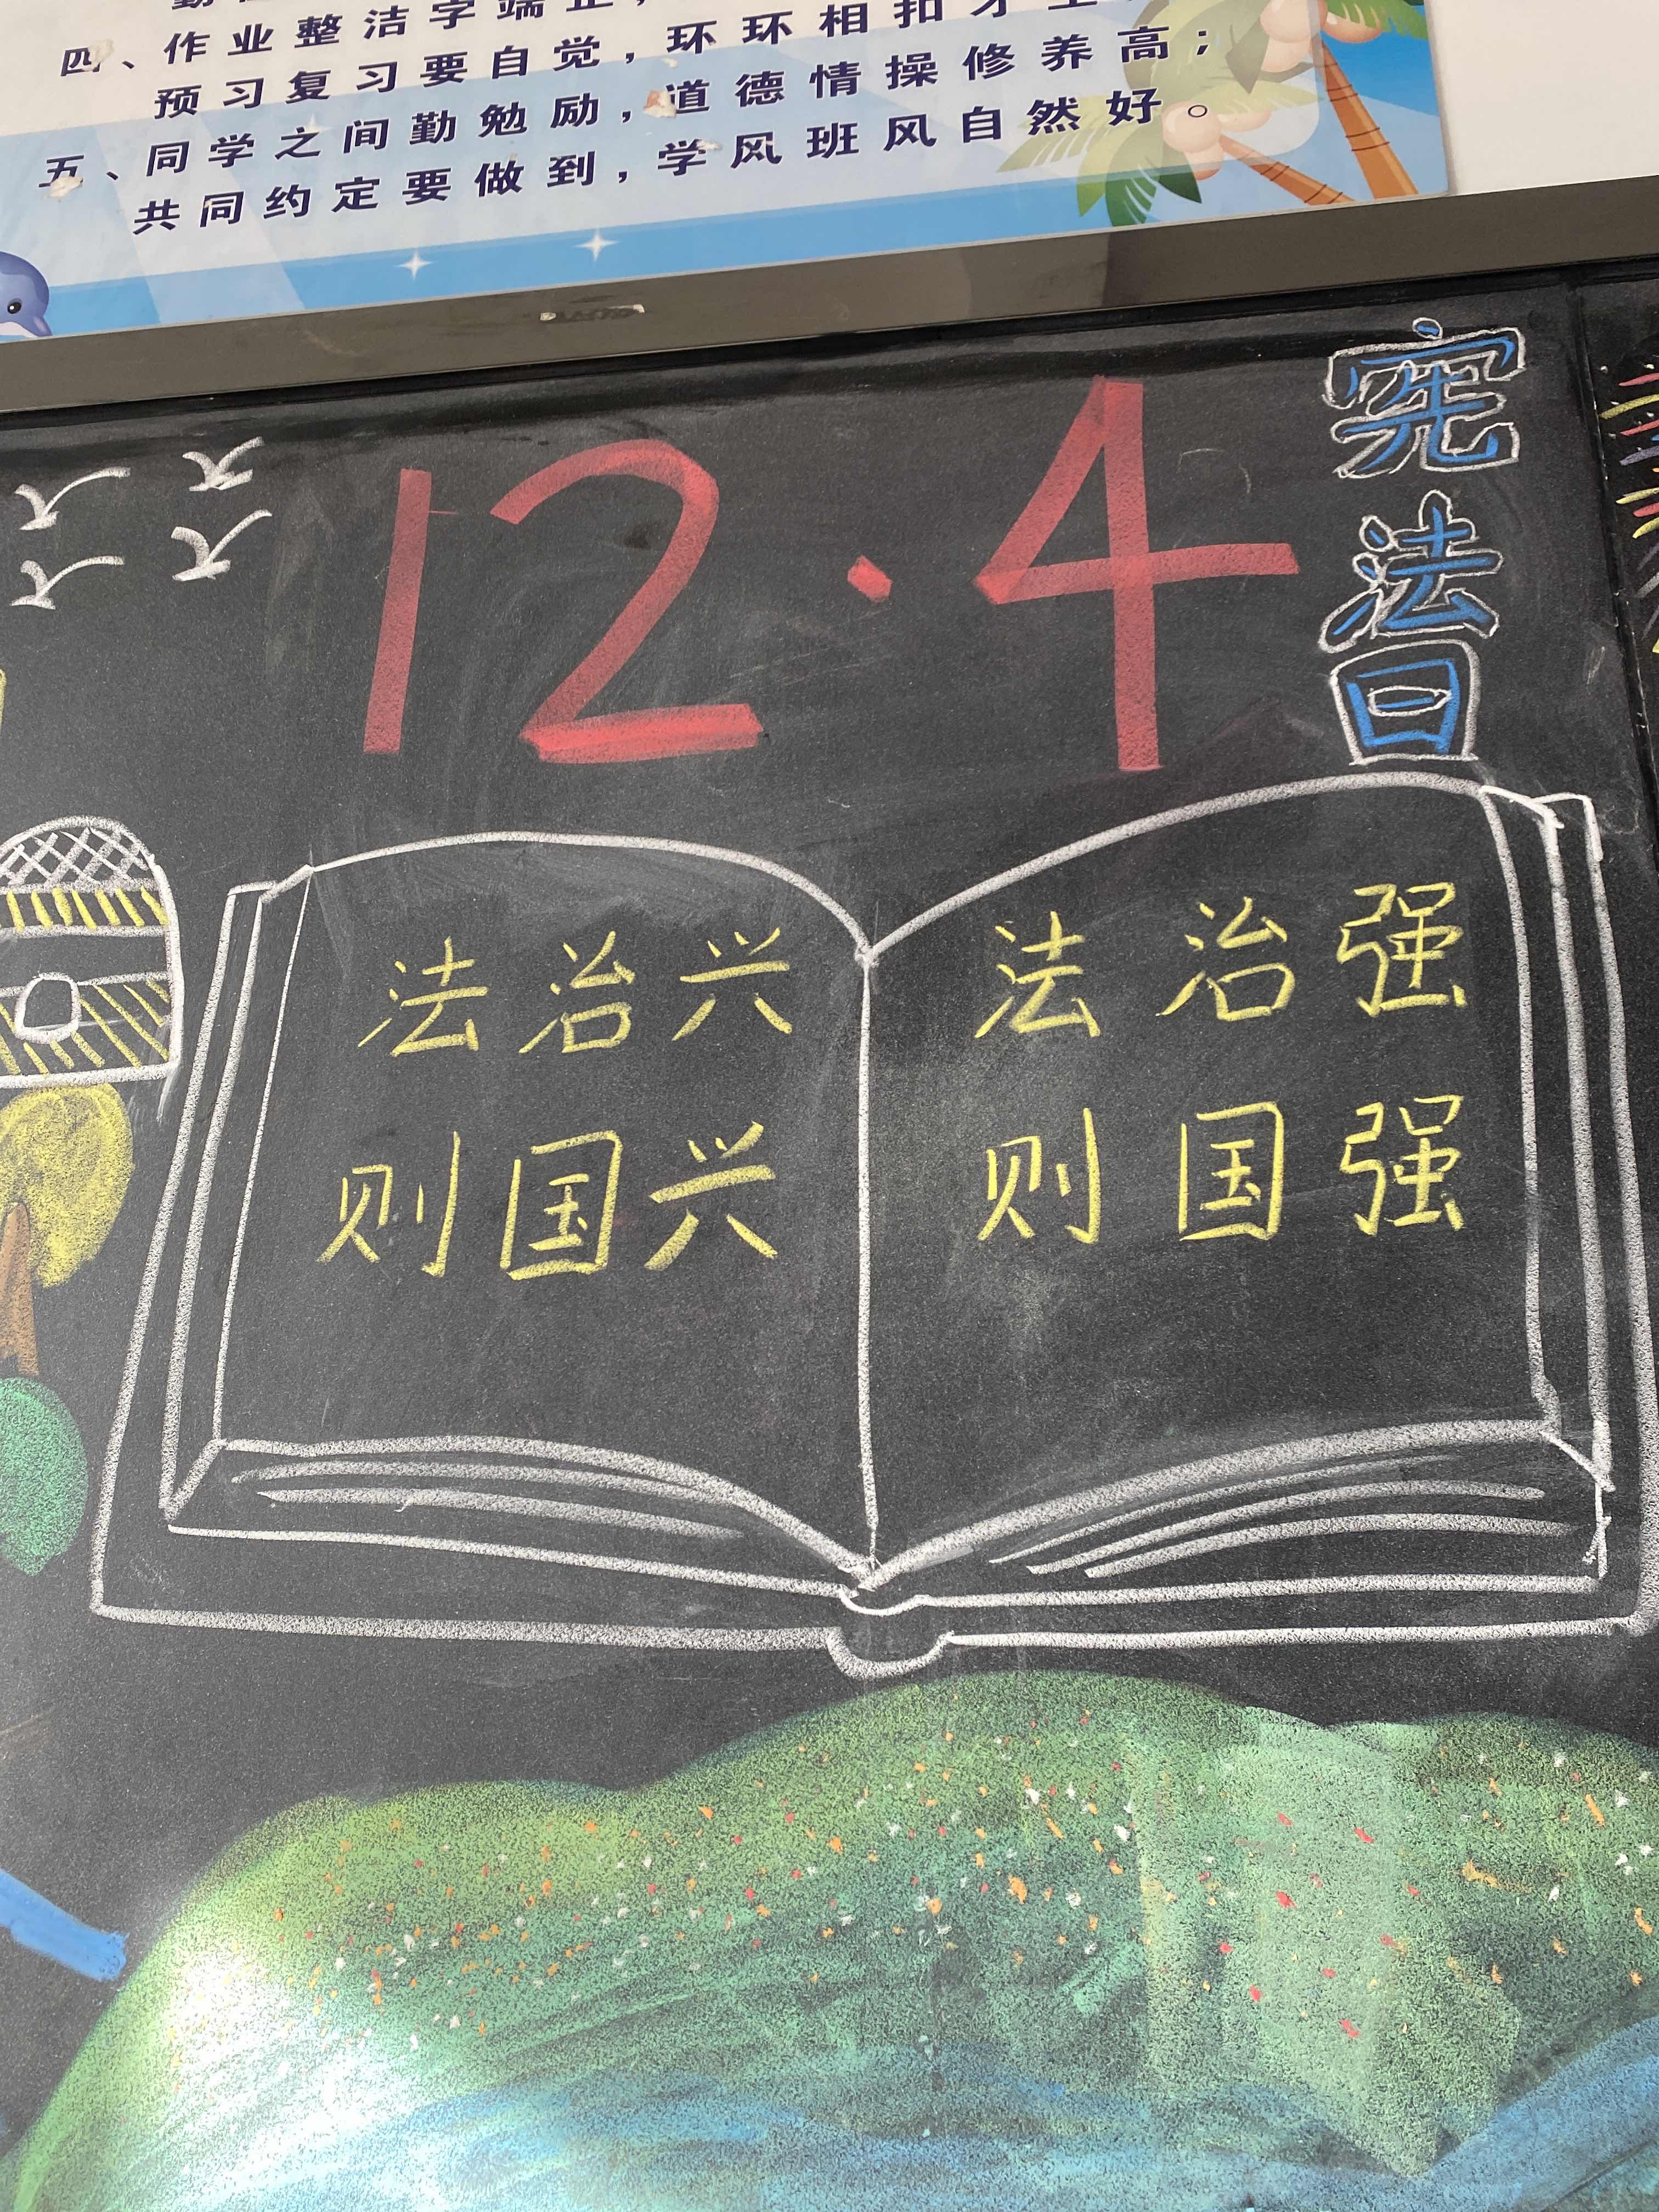 四、作业整洁字端正，
预习复习要自觉，环环相扣
五、同学之间勤勉励，道德情操修养高；
共同约定要做到，学风班风自然好。
12·4
宪法日
法治兴
则国兴
法治强
则国强